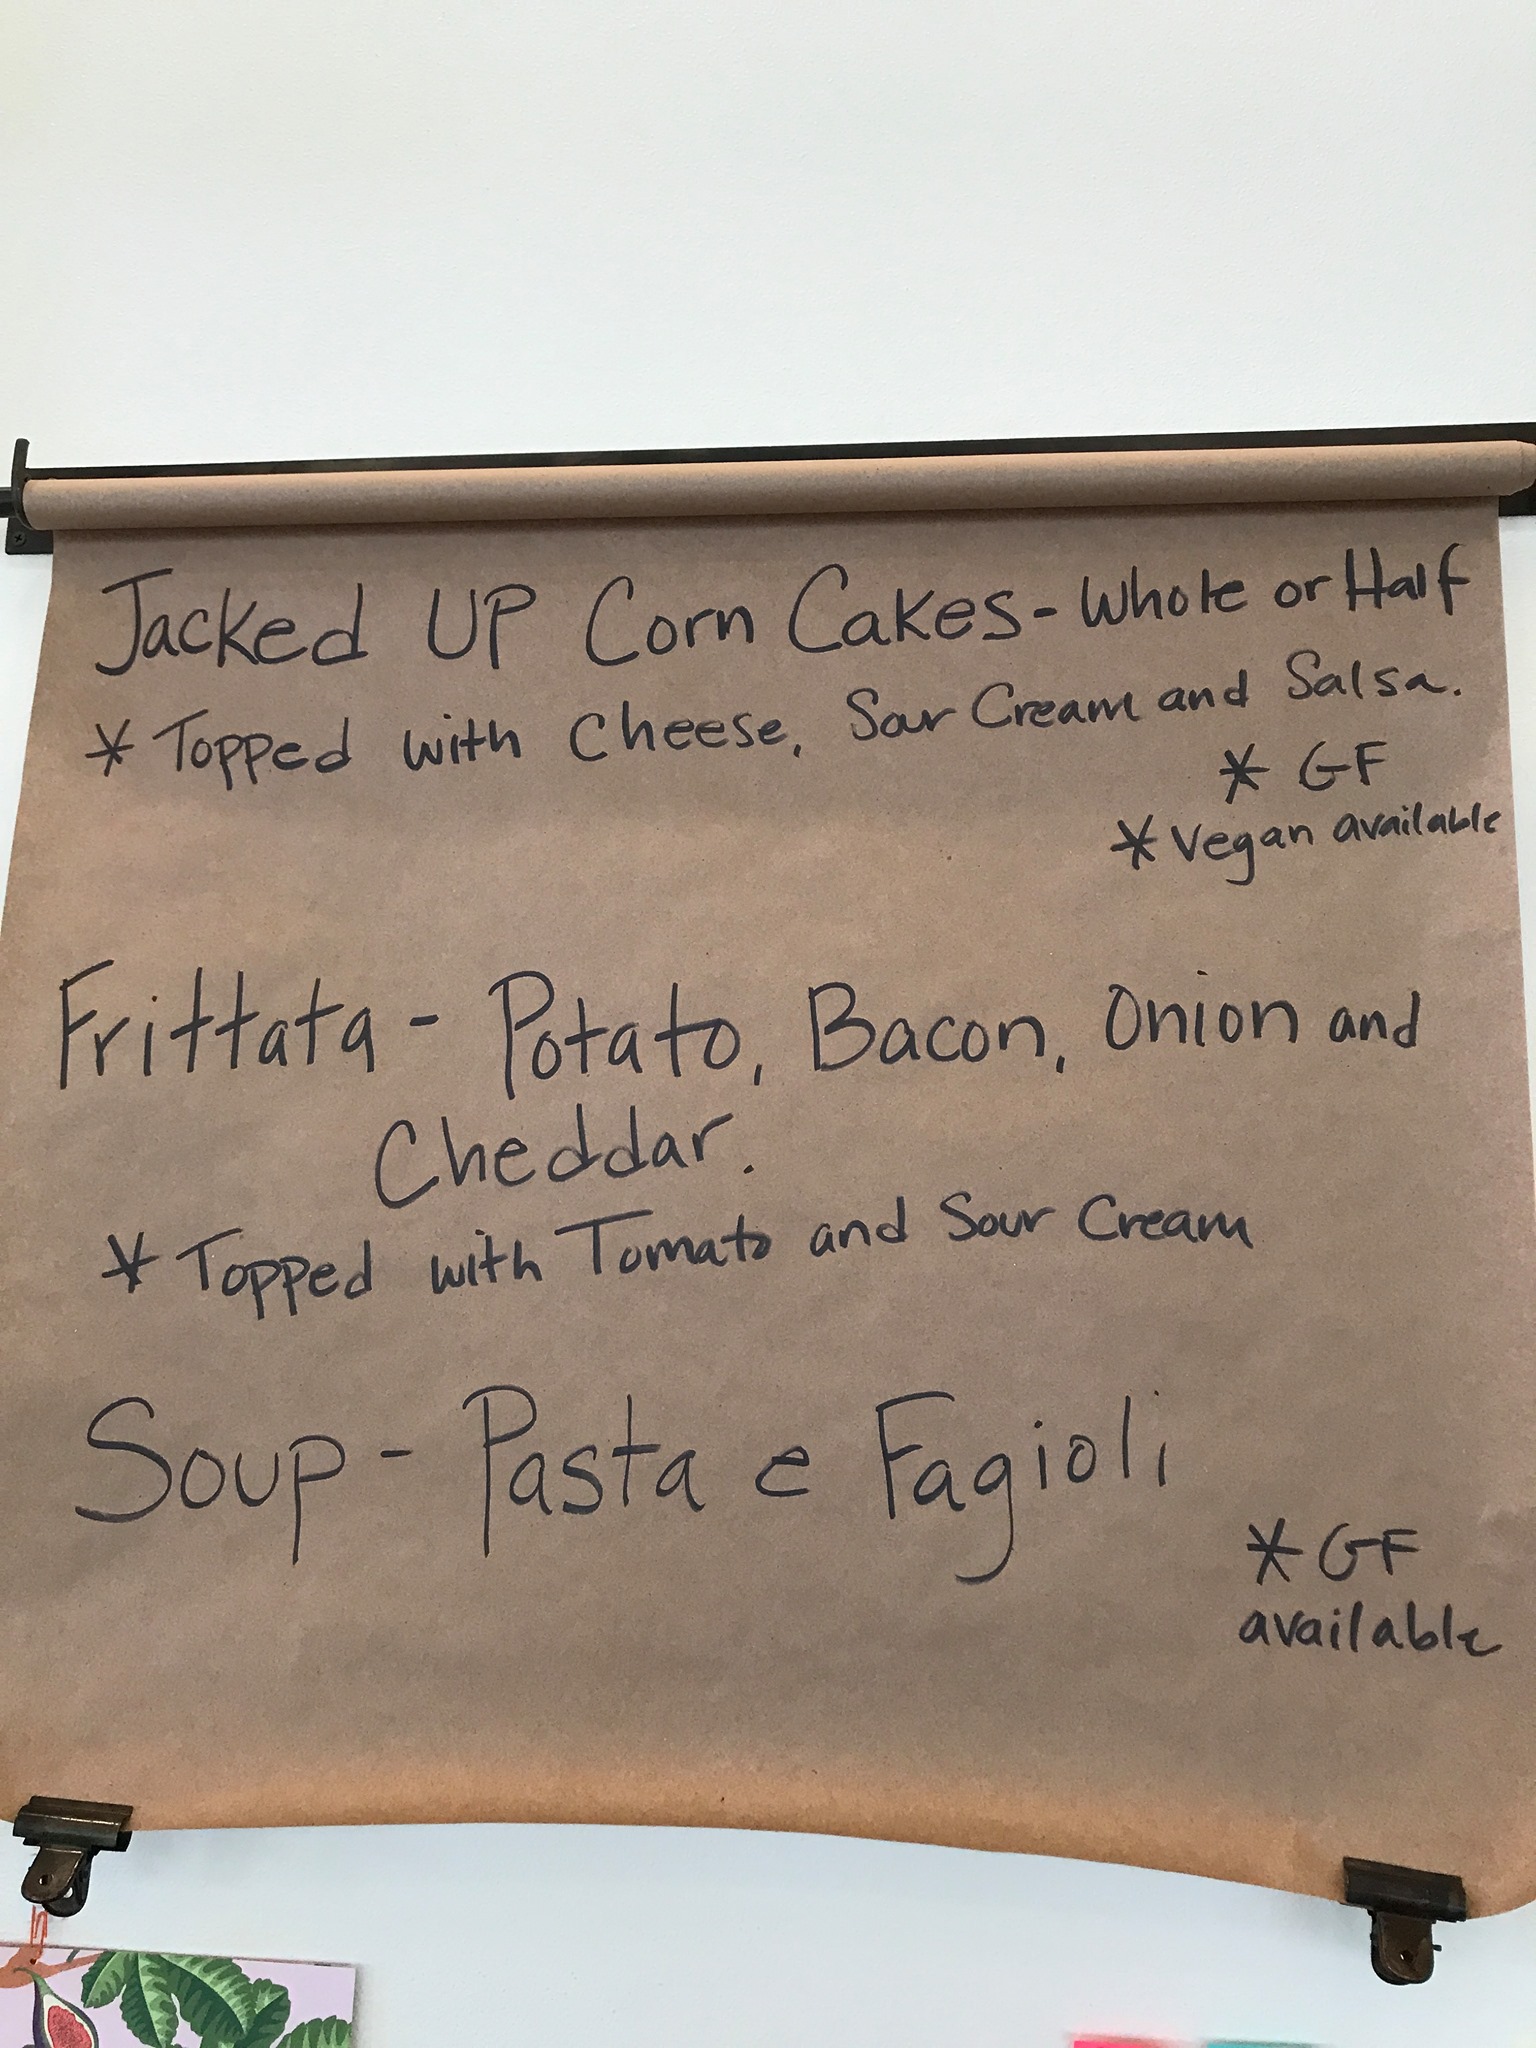 Jacked UP Corn Cakes - Whole or Half
* Topped with Cheese, Sour Cream and Salsa.
* GF
* Vegan available
Frittata - Potato, Bacon, Onion and
Cheddar.
* Topped with Tomato and Sour Cream
Soup - Pasta e Fagioli
* GF
available